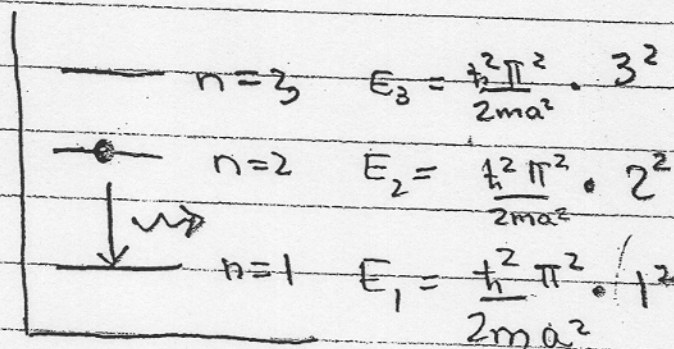 n=3 E₃ = ħ²π²/2ma² · 3²
n=2 E₂ = ħ²π²/2ma² · 2²
n=1 E₁ = ħ²π²/2ma² · 1²